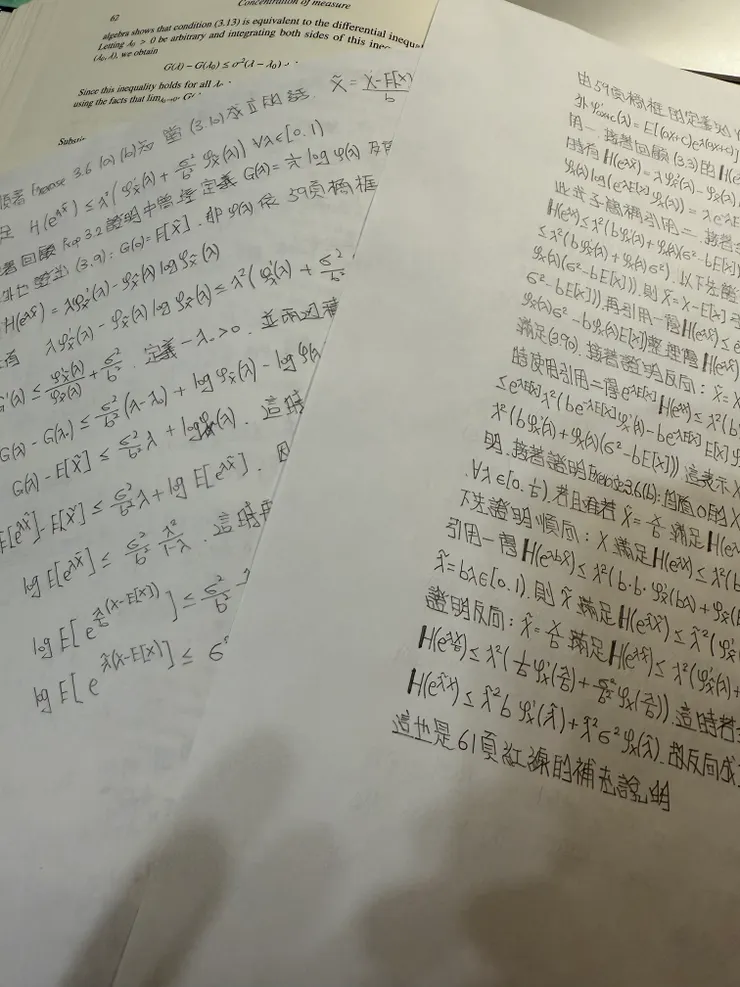 62
Concentration of measure
algebra shows that condition (3.13) is equivalent to the differential inequ
Letting λ₀ > 0 be arbitrary and integrating both sides of this ine
(λ₀, λ), we obtain
G(λ) − G(λ₀) ≤ σ²(λ − λ₀)
Since this inequality holds for all λ
using the facts that lim
3.6 (a) (b)知 當 (3.10) 成立的話. X̃ = (X-E[X])/b
足 H(e^{λX̃}) ≤ λ²(φ'_X̃(λ) + σ²/b² φ_X̃(λ)) ∀λ∈[0,1)
著回顧 Prop 3.2 證明中曾經定義 G(λ) = 1/λ log φ(λ) 及
(3.9): G(0) = E[X̃]. 即 φ(λ) 依 59頁橘框
H(e^{λX̃}) = λφ'_X̃(λ) - φ_X̃(λ) log φ_X̃(λ)
有 λφ'_X̃(λ) - φ_X̃(λ) log φ_X̃(λ) ≤ λ²(φ'_X̃(λ) + σ²/b²
G'(λ) ≤ φ'_X̃(λ)/φ_X̃(λ) + σ²/b². 定義一 λ₀>0. 並兩邊積
G(λ) - G(λ₀) ≤ σ²/b² (λ-λ₀) + log φ_X̃(λ) - log φ(λ
G(λ) - E[X̃] ≤ σ²/b² λ + log φ_X̃(λ). 這時
E[e^{λX̃}] - E[X̃] ≤ σ²/b² λ + log E[e^{λX̃}]. 因
log E[e^{λX̃}] ≤ σ²/b² λ²/(1-λ). 這時用
log E[e^{λ/b (X-E[X])}] ≤ σ²/b²
log E[e^{λ̃(X-E[X])}] ≤ σ²
由59頁橘框的定義知
外 φ'_{ax+c}(λ) = E[(ax+c)e^{λ(ax+c)}]
用一. 接著回顧 (3.3) 的 H(e
時有 H(e^{λX}) = λφ'_X(λ) - φ_X(λ)
φ_X(λ) log(e^{λE[X]} φ_X(λ)) = λe^{λE
此式子為稱引用二. 接著
H(e^{λX}) ≤ λ²(bφ'_X(λ) + φ_X(λ)(σ²-bE[X])
≤ λ²(bφ'_X(λ) + φ_X(λ)σ²). 以下先證
φ_X(λ)(σ²-bE[X])). 則 X̃ = X-E[X]
σ²-bE[X])). 再引用一得 H(e^{λX̃}) ≤ e
φ_X(λ)σ² - bφ_X(λ)E[X]) 整理得 H(e^{λX̃})
滿足(3.90). 接著證明反向: X̃ = X
時使用引用二得 e^{λE[X]} H(e^{λX̃}) ≤ λ²(b
≤ e^{λE[X]} λ²(be^{-λE[X]} φ'_X(λ) - be^{-λE[X]} E[X] φ
λ²(bφ'_X(λ) + φ_X(λ)(σ²-bE[X])) 這表示 X
明. 接著證明 Exercise 3.6(b): 均值0的X
∀λ∈[0, 1/b). 若且唯若 X̃ = X/b 滿足 H(e^{λX
下先證明順向: X 滿足 H(e^{λX}) ≤ λ²(b
引用一得 H(e^{λbX̃}) ≤ λ²(b·b·φ'_X̃(bλ) + φ_X̃(b
λ̃ = bλ∈[0,1). 則 X̃ 滿足 H(e^{λ̃X̃}) ≤ λ̃²(φ'_X̃(
證明反向: X̃ = X/b 滿足 H(e^{λX̃}) ≤ λ²(φ'_X̃(λ)+
H(e^{λX/b}) ≤ λ²(1/b φ'_X(λ/b) + σ²/b² φ_X(λ/b)). 這時若
H(e^{λ̃X}) ≤ λ̃² b φ'_X(λ̃) + λ̃² σ² φ_X(λ̃). 故反向成
這也是61頁紅線的補充說明